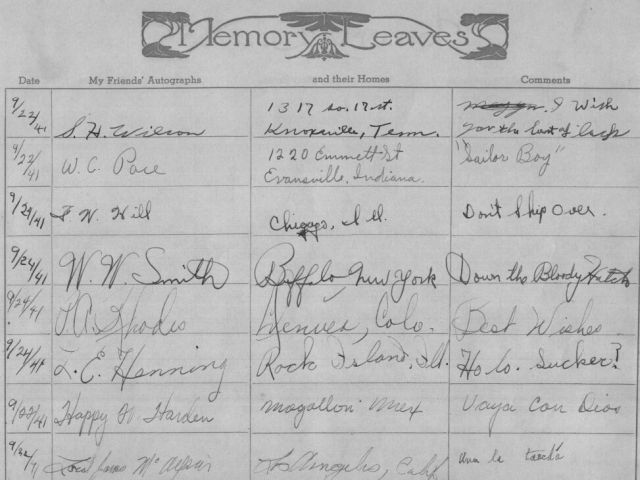 Memory Leaves
Date My Friends' Autographs and their Homes Comments
9/22/41 S. H. Wilson 1317 so. 17 st. Knoxville, Tenn. I Wish you the best of luck
9/22/41 W. C. Pace 1220 Emmett St Evansville, Indiana. "Sailor Boy"
9/24/41 F. W. Hill Chicago, Ill. Don't Ship Over.
9/24/41 W. W. Smith Buffalo New York Down the Bloody Hatch
9/24/41 Rhodes Denver, Colo. Best Wishes
9/24/41 L. E. Henning Rock Island, Ill. Ho lo. Sucker?
9/22/41 Happy W. Harden Magollon Mex Vaya Con Dios
Los Angeles, Calif